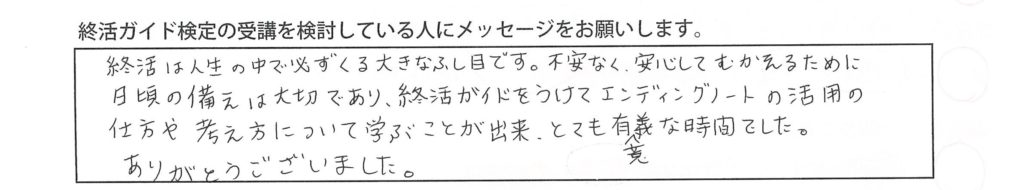 終活ガイド検定の受講を検討している人にメッセージをお願いします。
終活は人生の中で必ずくる大きなふし目です。不安なく、安心してむかえるために
日頃の備えは大切であり、終活ガイドをうけてエンディングノートの活用の
仕方や考え方について学ぶことが出来、とても有義な時間でした。
ありがとうございました。